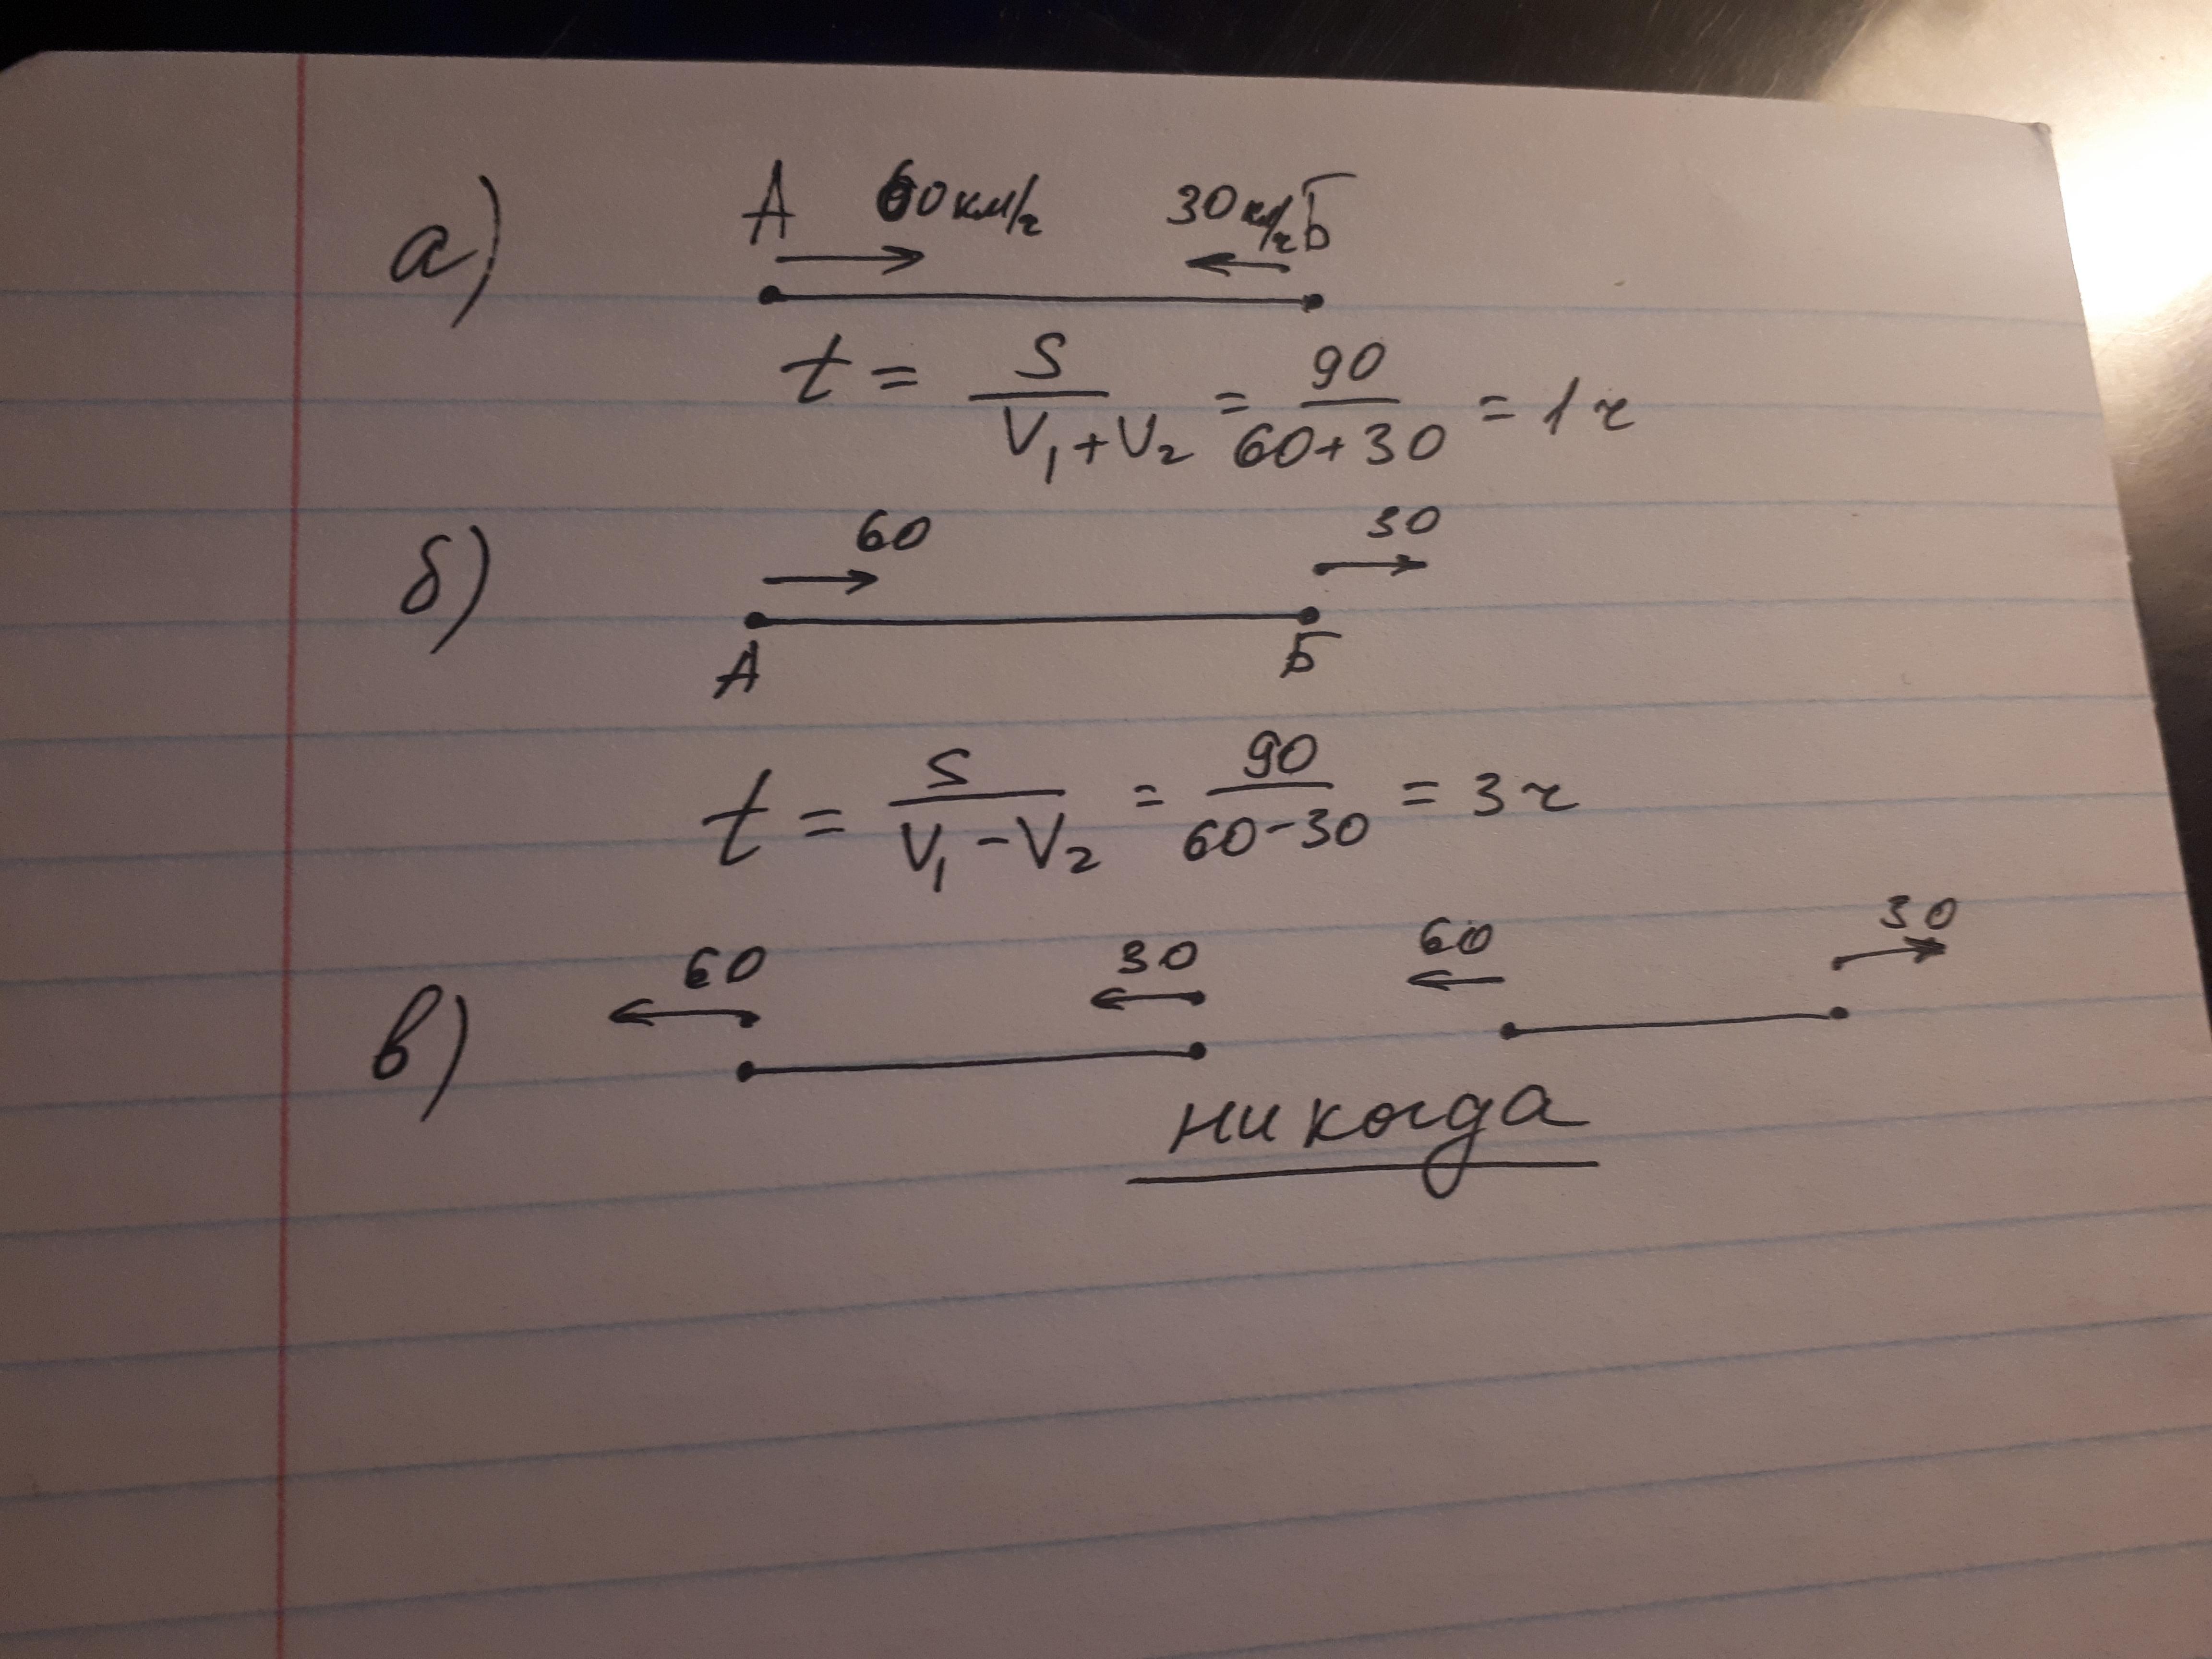 а) А 60 км/ч 30 км/ч Б
t = S / (V₁ + V₂) = 90 / (60 + 30) = 1 ч
б) 60 30
А Б
t = S / (V₁ - V₂) = 90 / (60 - 30) = 3 ч
в) 60 30 60 30
никогда